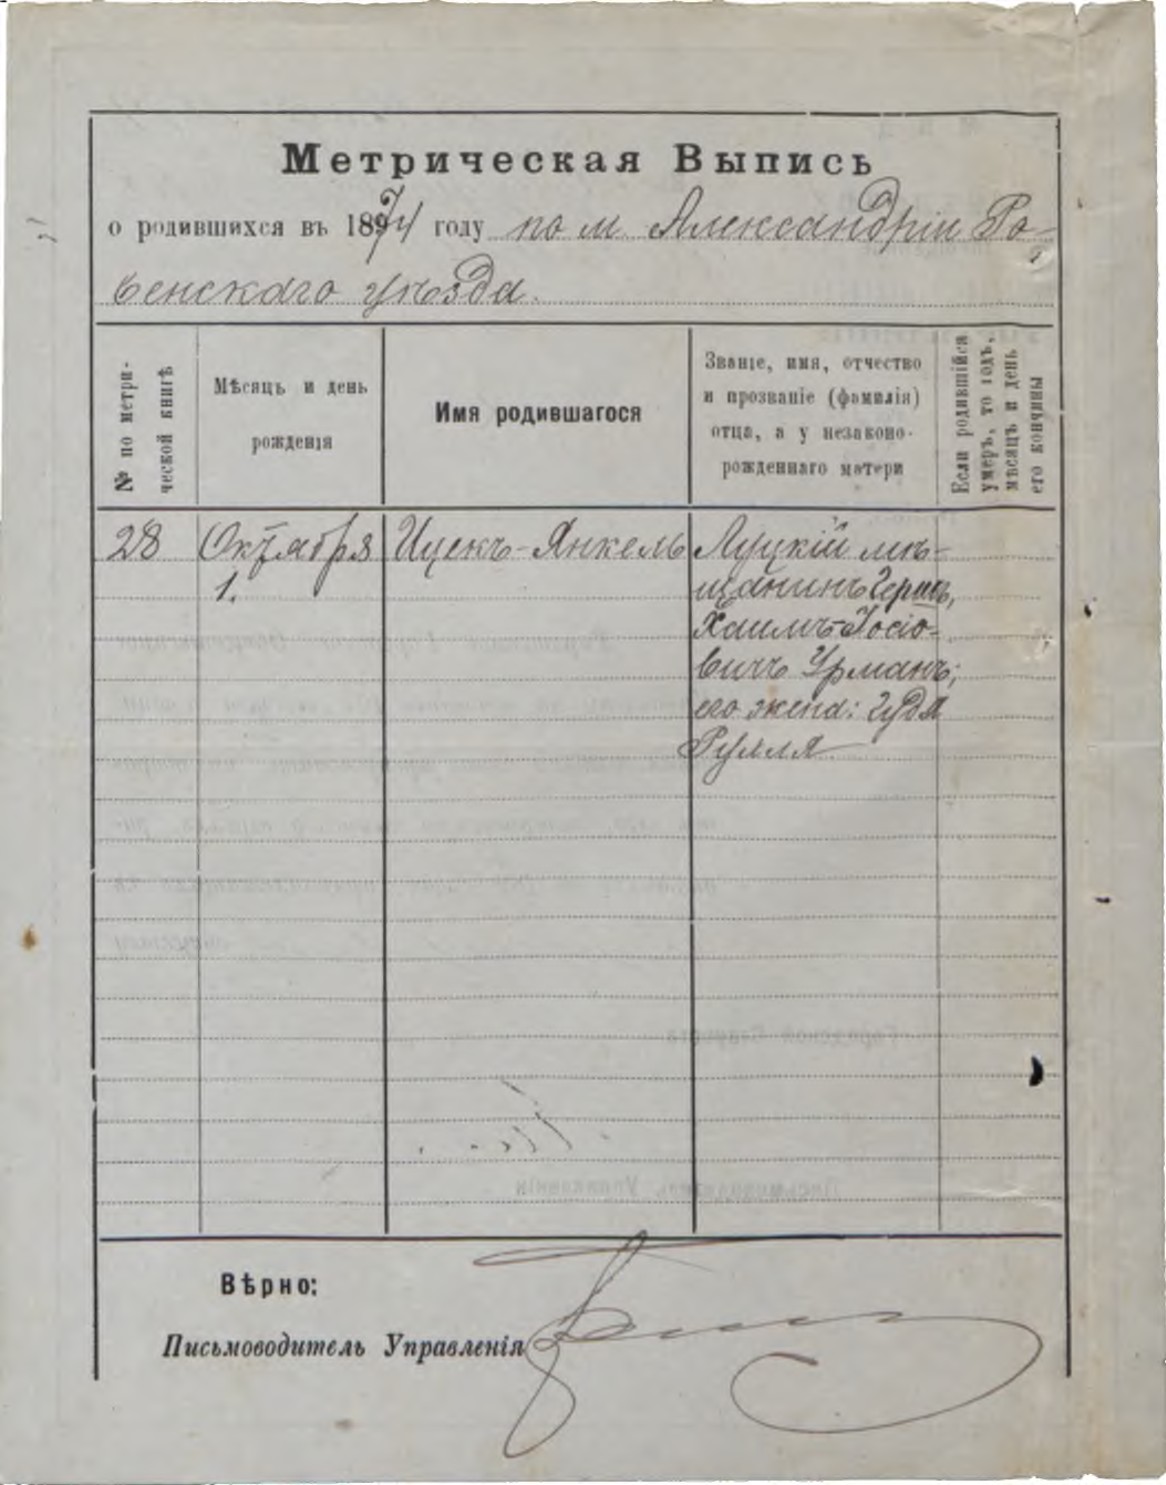 Метрическая Выпись
о родившихся въ 1874 году по м. Александріи Ро-
венскаго уѣзда.
№ по метри-
ческой книгѣ
Мѣсяцъ и день
рожденія
Имя родившагося
Званіе, имя, отчество
и прозваніе (фамилія)
отца, а у незаконо-
рожденнаго матери
Если родившійся
умеръ, то годъ,
мѣсяцъ и день
его кончины
28 Октября Ицекъ-Янкель Луцкій мѣ-
1. щанинъ Гершъ,
Хаимъ-Іосіо-
вичъ Урманъ;
его жена: Гудя
Рухля
Вѣрно:
Письмоводитель Управленія